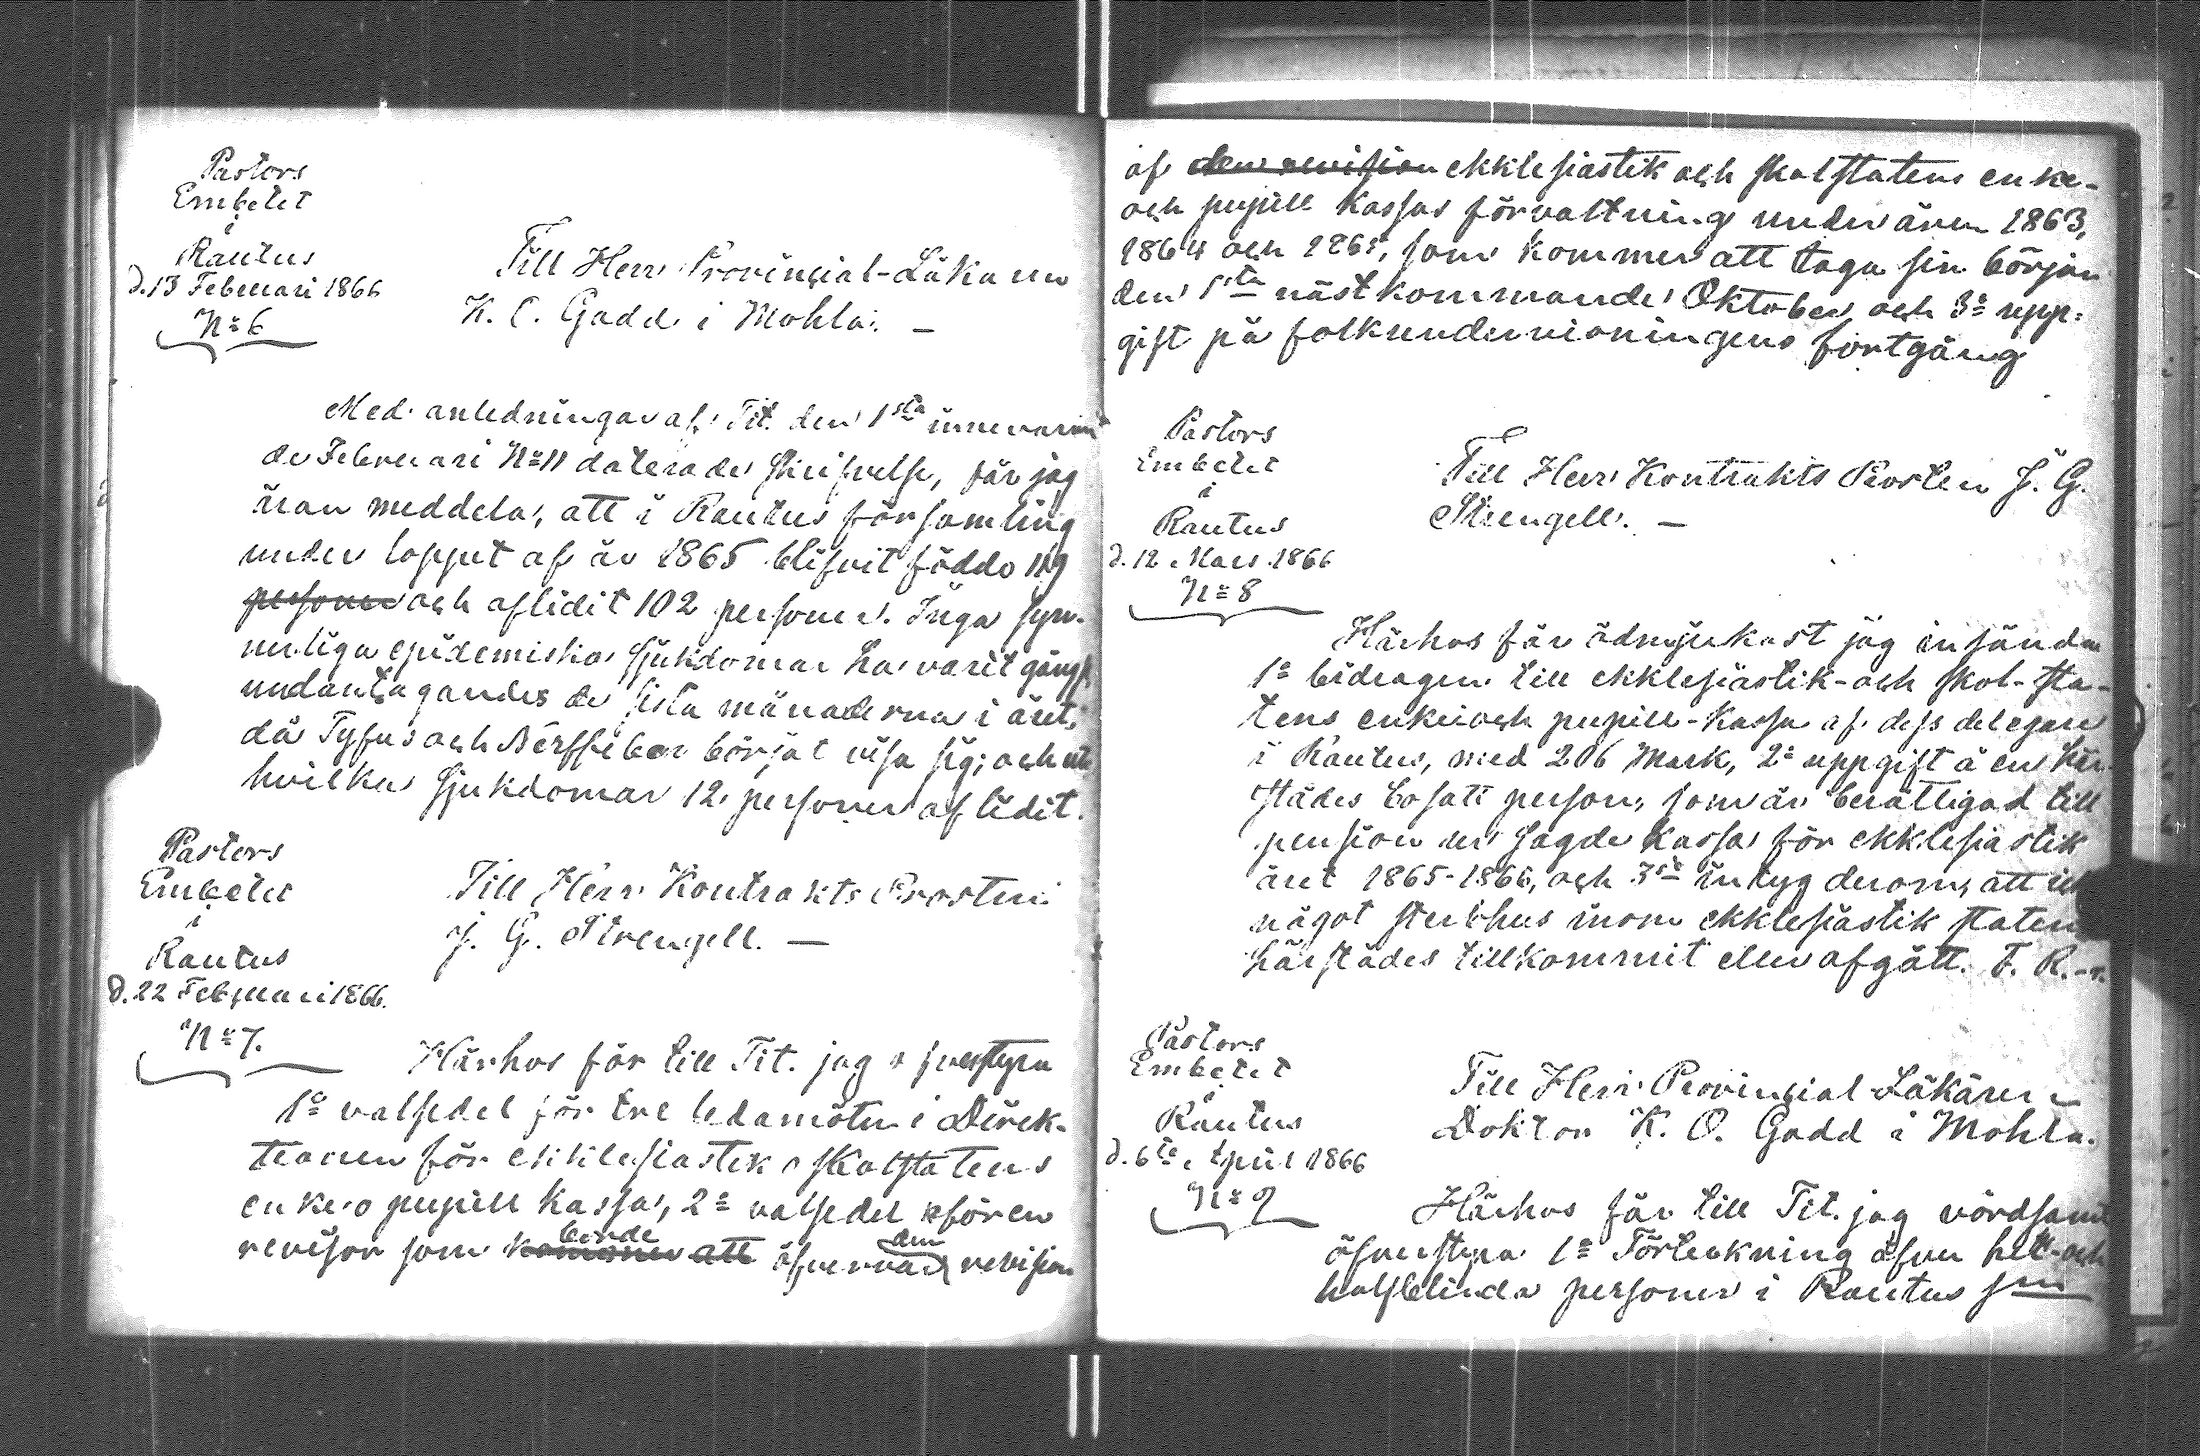 Pastors
Embetet
i
Rautus
d. 13 Februari 1866
N:o 6
Till Herr Provincial-Läkaren
K. O. Gadd i Mohla. —
Med anledningar af Tit. den 1sta innevaran
de Februari N:o 11 daterade skrifvelse, får jag
äran meddela, att i Rautus församling
under loppet af år 1865 blifvit födde 119
personer och aflidit 102 personer. Inga syn-
nerliga epidemiska sjukdomar ha varit gängs,
undantagandes de sista månaderna i året,
då Tyfus och Nerffeber börjat visa sig, och
hvilka sjukdomar 12 personer aflidit.
Pastors
Embetet
i
Rautus
d. 22 Februari 1866.
N:o 7.
Till Herr Kontrakts Prosten
J. G. Strengell. —
Härhos får till Tit. jag öfverstyra
1:o valsedel för tre ledamöter i Direk-
tionen för ekklesiastik o skolstatens
enke- o pupill kassa, 2:o valsedel för en
revisor som kommer att borde öfvervara den revision
af den revision ekklesiastik och skolstatens enke-
och pupill kassas förvaltning under åren 1863,
1864 och 1865, som kommer att taga sin början
den 1sta nästkommande Oktober, och 3:o upp-
gift på folkundervisningens fortgång
Pastors
Embetet
i
Rautus
d. 12 Mars 1866
N:o 8
Till Herr Kontrakts Prosten J. G.
Strengell. —
Härhos får ödmjukast jag insända
1:o bidragen till ekklesiastik- och skol-sta-
tens enke- och pupill-kassa af dess delegare
i Rautus, med 206 Mark, 2:o uppgift å en här-
städes bosatt person, som är berättigad till
pension ur sagde kassa för ekklesiastik
året 1865-1866, och 3:o intyg derom, att
något sterbhus inom ekklesiastik staten
härstädes tillkommit eller afgått. F. R.
Pastors
Embetet
i
Rautus
d. 6te April 1866
N:o 9
Till Herr Provincial-Läkaren
Doktor K. O. Gadd i Mohla.
Härhos får till Tit. jag vördsamt
öfverstyra 1:o Förteckning öfver hel- och
halfblinda personer i Rautus sn